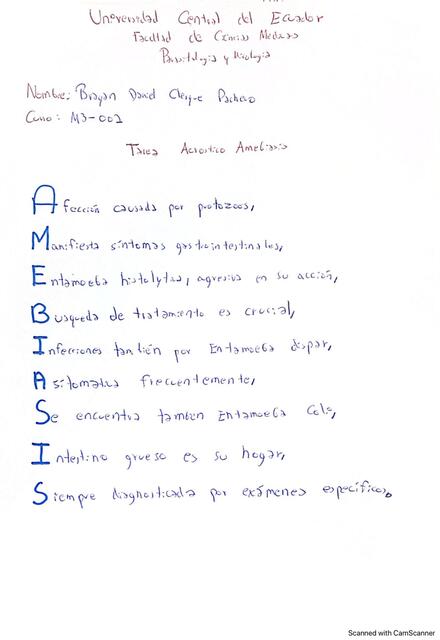 Universidad Central del Ecuador
Facultad de Ciencias Médicas
Parasitología y Micología
Nombre: Brayan David Clerque Pacheco
Curso: M3-002
Tarea Acróstico Amebiasis
Afección causada por protozoos,
Manifiesta síntomas gastrointestinales,
Entamoeba histolytica, agresiva en su acción,
Búsqueda de tratamiento es crucial,
Infecciones también por Entamoeba dispar,
Asitomatica frecuentemente,
Se encuentra también Entamoeba Coli,
Intestino grueso es su hogar,
Siempre diagnosticada por exámenes específicos.
Scanned with CamScanner